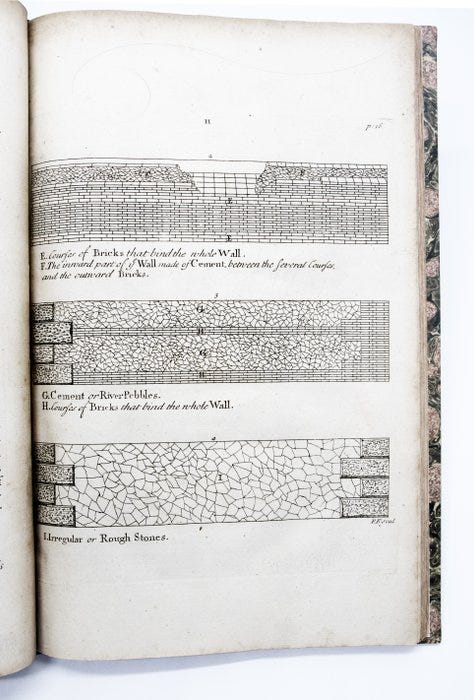 H
p. 16.
2
F
F
E
Æ
E. Courses of Bricks that bind the whole Wall.
F. The inward part of yͤ Wall made of Cement, between the several Courses,
and the outward Bricks.
3
G
H
G
H
G. Cement or River Pebbles.
H. Courses of Bricks that bind the whole Wall.
I
P.F. scul
I. Irregular or Rough Stones.